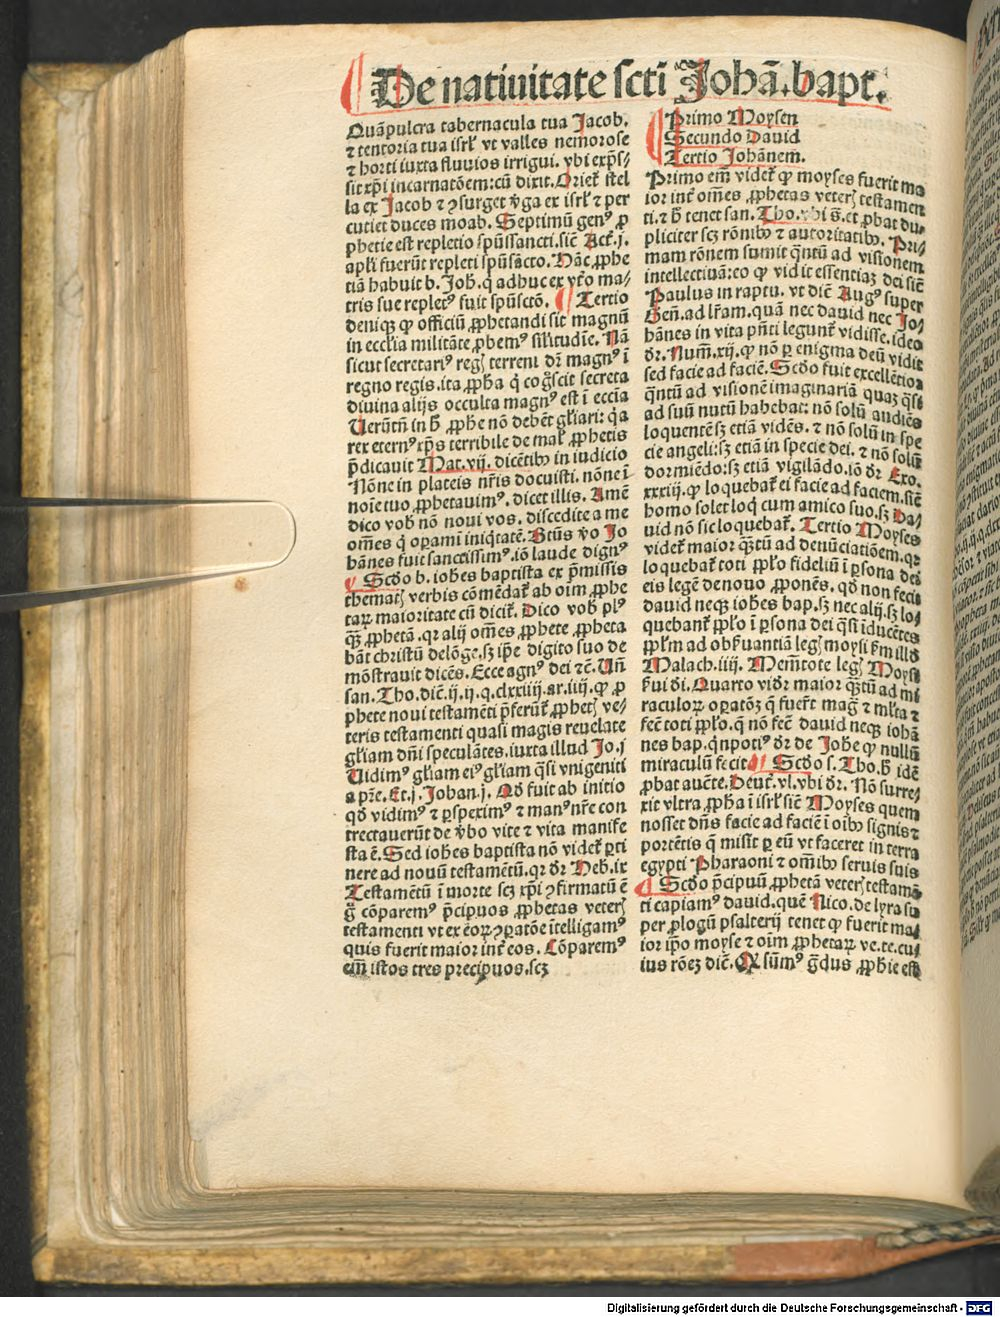 De natiuitate scti Johā.bapt.
Quāpulcra tabernacula tua Jacob.
⁊ tentoria tua isrl̓ vt valles nemorose
⁊ horti iuxta fluuios irrigui. vbi exp̄s/
sit xp̄i incarnatōem: cū dixit. Oriet᷑ stel
la ex Jacob ⁊ ꝯsurget v̄ga ex isrl̓ ⁊ per
cutiet duces moab. Septimū genꝰ ꝓ
phetie est repletio spūssancti. sic̄ Act̄. j.
apl̓i fuerūt repleti spūsācto. Hāc ꝓphe
tiā habuit b. Joh. q̇ adhuc ex vt̄o ma/
tris sue repletꝰ fuit spūsctō. ¶ Tertio
deniqꝫ ꝙ officiū ꝓphetandi sit magnū
in ecclīa militāte ꝓbemꝰ sil̓itudīe. Nā
sicut secretariꝰ regꝭ terreni dr̄ magnꝰ ī
regno regis. ita ꝓph̄a q̇ cōgscit secreta
diuina alijs occulta magnꝰ est ī eccīa
Uerūtn̄ in h̄ ꝓphe nō debēt gl̓iari: q̇a
rex eternꝰ xp̄s terribile de mal̓ ꝓphetis
p̄dicauit Mat. vij. dicētibꝰ in iudicio
Nōne in plateis nr̄is docuisti. nōne ī
noīe tuo ꝓphetauimꝰ. dicet illis. Amē
dico vob̄ nō noui vos. discedite a me
om̄es q̇ oꝑami iniq̇tatē. Btūs v̄o Jo
hānes fuit sanctissimꝰ. iō laude dignꝰ
¶ Scd̄o b. ioh̄es baptista ex p̄missis
thematꝭ verbis cōmēdat᷑ ab oim̄ ꝓphe
taꝝ maioritate cū dicit᷑. Dico vob̄ plꝰ
qꝫ ꝓphetā. qꝛ alij om̄es ꝓphete ꝓpheta
bāt christū delōge. sꝫ ip̄e digito suo de
mōstrauit dicēs. Ecce agnꝰ dei ⁊c̄. Un̄
san. Tho. dic̄. ij. ij. q. clxxiiij. ar. iiij. ꝙ ꝓ
phete noui testamēti p̄ferūt᷑ ꝓphetꝭ ve/
teris testamenti quasi magis reuelate
gl̓iam dn̄i speculātes. iuxta illud Jo. j
Uidimꝰ gl̓iam eiꝰ gl̓iam q̄si vnigeniti
a pr̄e. Et. j. Johan. j. Qd̄ fuit ab initio
qd̄ vidimꝰ ⁊ ꝑspeximꝰ ⁊ manꝰ nr̄e con
trectauerūt de v̄bo vite ⁊ vita manife
sta ē. Sed ioh̄es baptista nō videt᷑ ꝑti
nere ad nouū testamētū. qꝛ dr̄ Heb. ix
Testamētū ī morte scꝫ xp̄i ꝯfirmatū ē
g̊ cōparemꝰ p̄cipuos ꝓphetas veterꝭ
testamenti vt ex eoꝝ ꝯꝑatōe ītelligamꝰ
quis fuerit maior int᷑ eos. Cōparemꝰ
em̄ istos tres precipuos. scꝫ
Primo Moysen
Secundo Dauid
Tertio Johānem.
Primo em̄ videt᷑ ꝙ moyses fuerit ma
ior int᷑ om̄es ꝓphetas veterꝭ testamen
ti. ⁊ h̄ tenet san. Tho. vbi s̄. et ꝓbat du/
pliciter scꝫ rōnibꝰ ⁊ autoritatibꝰ. Pri/
mam rōnem sumit q̄ntū ad visionem
intellectiuā: eo ꝙ vidit essentiaꝫ dei sic̄
Paulus in raptu. vt dic̄ Augꝰ super
Gen̄. ad lr̄am. quā nec dauid nec Jo/
hānes in vita pn̄ti legunt᷑ vidisse. ideo
dr̄. Num̄. xij. ꝙ nō ꝑ enigma deū vidit
sed facie ad faciē. Scd̄o fuit excellētioꝛ
q̄ntū ad visionē imaginariā quaꝫ q̄si
ad suū nutū habebat: nō solū audiēs
loquentē sꝫ etiā vidēs. ⁊ nō solū in spe
cie angeli: sꝫ etiā in specie dei. ⁊ nō solū
dormiēdo: sꝫ etiā vigilādo. iō dr̄ Exo.
xxxiij. ꝙ loquebat᷑ ei facie ad faciem. sic̄
homo solet loq̇ cum amico suo. sꝫ Da/
uid nō sic loquebat᷑. Tertio Moyses
videt᷑ maior q̄tū ad denūciatiōem. qꝛ
loquebat᷑ toti ppl̓o fideliū ī ꝑsona dei
eis legē de nouo ꝓponēs. qd̄ non fecit
dauid neqꝫ ioh̄es bap. sꝫ nec alij. sꝫ lo/
quebant᷑ ppl̓o ī ꝑsona dei q̄si īducētes
ppl̓m ad obs̄uantiā legꝭ moysi s̄m illd̄
Malach. iiij. Mem̄tote legꝭ Moysi
s̄ui d̄i. Quarto vidr̄ maior q̄tū ad mi
raculoꝝ oꝑatōꝫ q̄ fuer̄t maḡ ⁊ ml̓ta ⁊
fec̄ toti ppl̓o. q̄ nō fec̄ dauid neqꝫ iohā
nes bap. q̇npotiꝰ dr̄ de Joh̄e ꝙ nullū
miraculū fecit ¶ Scd̄o s. Tho. h̄ idē
ꝓbat auc̄te. Deut̄. vl. vbi dr̄. Nō surre/
xit vltra ꝓph̄a ī isrl̓ sic̄ Moyses quem
nosset dn̄s facie ad faciē ī oībꝰ signis ⁊
portētis q̄ misit ꝑ eū vt faceret in terra
egypti Pharaoni ⁊ om̄ibꝰ seruis suis
¶ Scd̄o p̄cipuū ꝓphetā veterꝭ testamē
ti capiamꝰ dauid. quē Nico. de lyra su
per ꝓlogū psalterij tenet ꝙ fuerit ma/
ior ip̄o moyse ⁊ oim̄ ꝓphetaꝝ ve. te. cu/
ius rōeꝫ dic̄. Qꝛ sūmꝰ ḡdus ꝓphīe est
Digitalisierung gefördert durch die Deutsche Forschungsgemeinschaft - DFG